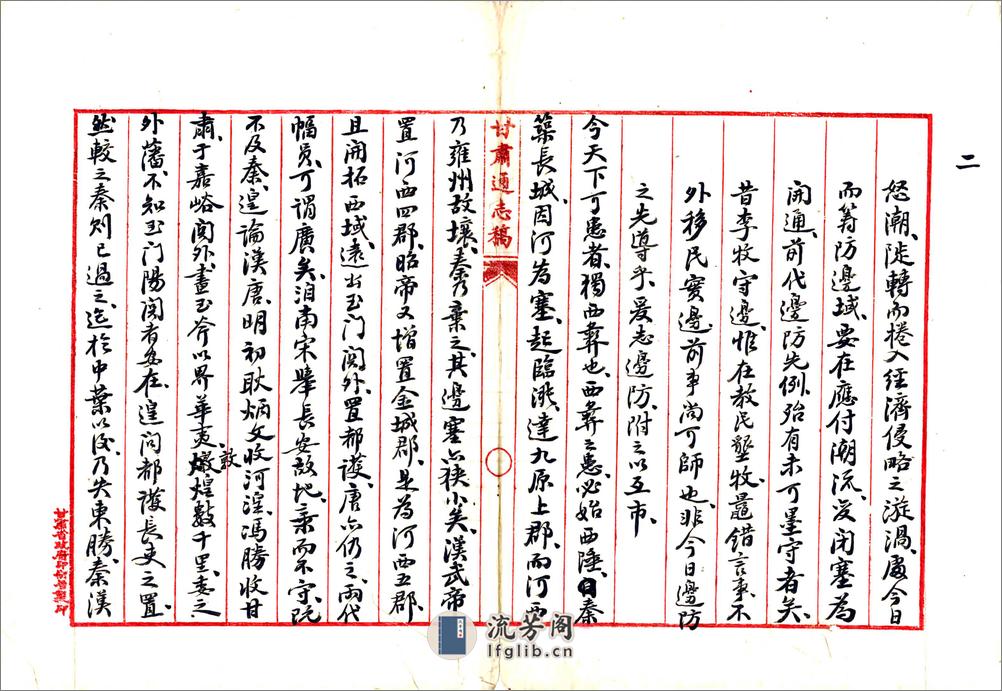 二
怒潮、陡轉而捲入經濟侵略之漩渦、處今日
而籌防邊域、要在應付潮流、沒閉塞為
開通、前代邊防先例、殆有未可墨守者矣、
昔李牧守邊、惟在教民墾牧、鼂錯言事、不
外移民實邊、前事尚可師也、非今日邊防
之先導乎、爰志邊防、附之以互市、
今天下可患者、獨西彝也、西彝之患、必始西陲、自秦
築長城、因河為塞、起臨洮、達九原上郡、而河西
甘肅通志稿
乃雍州故壤、秦乃棄之、其邊塞亦狹小矣、漢武帝
置河西四郡、昭帝又增置金城郡、是為河西五郡、
且開拓西域、遠出玉门関外、置都護、唐亦仍之、兩代
幅員、可謂廣矣、洎南宋舉長安故地、棄而不守、既
不及秦、遑論漢唐、明初耿炳文收河湟、馮勝收甘
肅、于嘉峪関外、畫玉斧以界華夷、敦煌數千里、委之
外藩、不知玉门陽関者安在、遑问都護長史之置、
然較之秦則已過之、迄於中葉以後、乃失東勝、秦漢
甘肅省政府印刷局製印
流芳阁
lfglib.cn